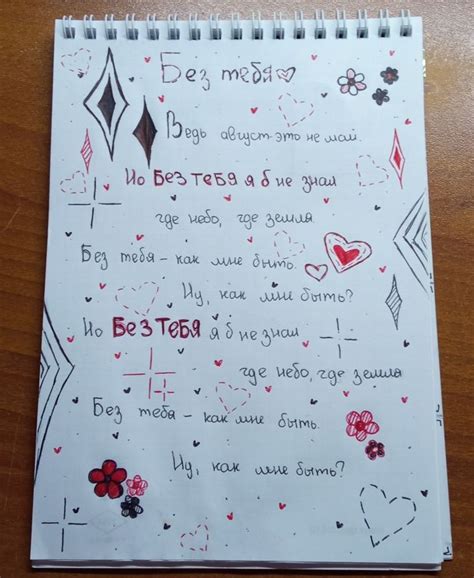 Без тебя
Ведь август-это не май.
Но БЕЗ ТЕБЯ я б не знал
где небо, где земля
Без тебя - как мне быть.
Ну, как мне быть?
Но БЕЗ ТЕБЯ я б не знал
где небо, где земля
Без тебя - как мне быть.
Ну, как мне быть?